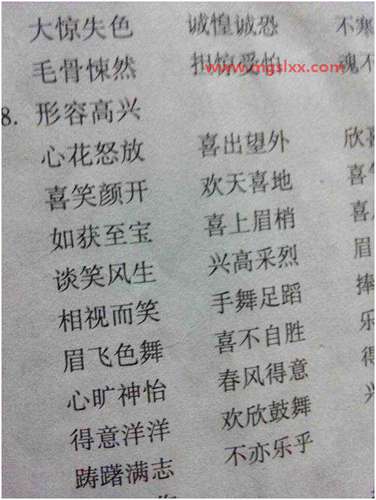 大惊失色 诚惶诚恐 不寒
毛骨悚然 担惊受怕 魂不
www.mgslxx.com
8. 形容高兴
心花怒放 喜出望外 欣喜
喜笑颜开 欢天喜地 喜气
如获至宝 喜上眉梢 喜
谈笑风生 兴高采烈 眉
相视而笑 手舞足蹈 捧
眉飞色舞 喜不自胜 乐
心旷神怡 春风得意
得意洋洋 欢欣鼓舞
踌躇满志 不亦乐乎